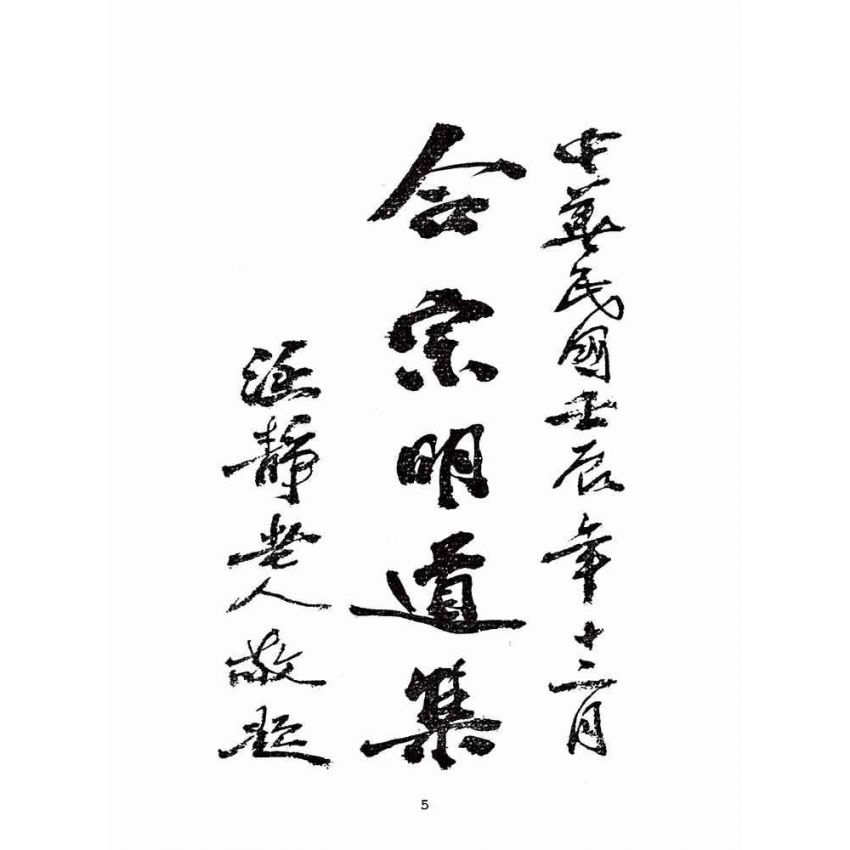 中華民國壬辰年十二月
合宗明道集
涵靜老人敬題
5